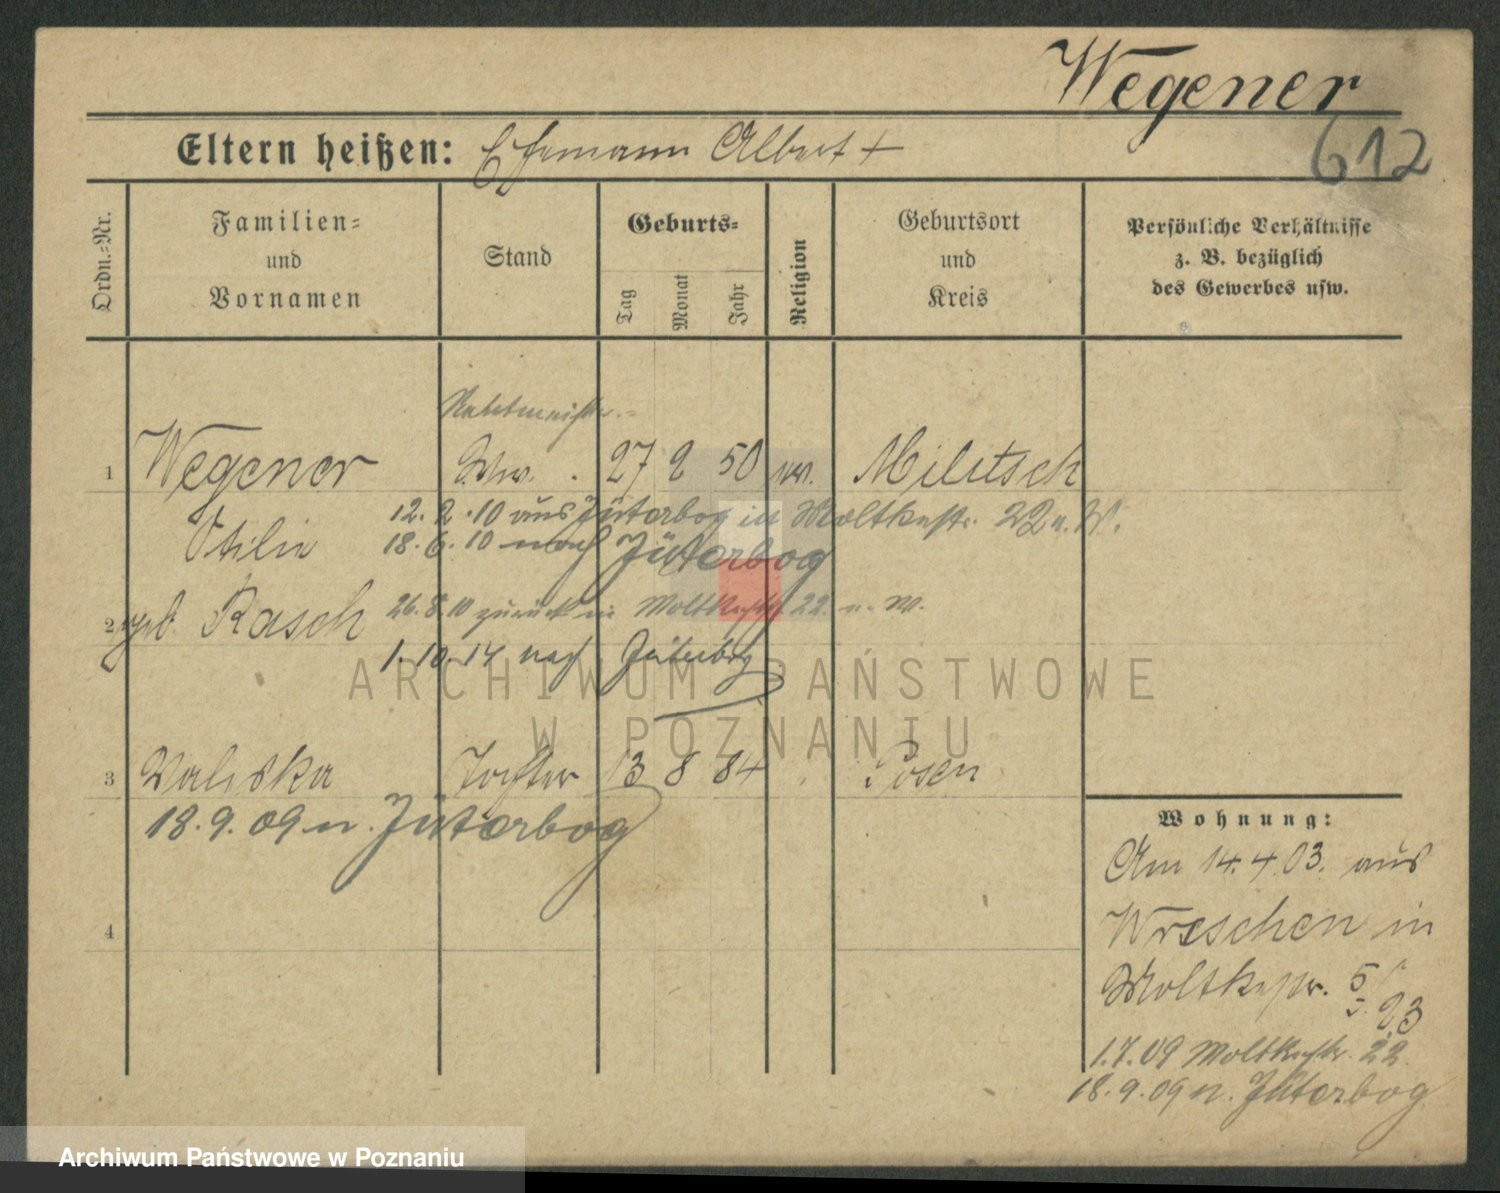 Wegener
612
Eltern heißen: Ehemann Albert +
Ordn.-Nr.
Familien- und Vornamen
Stand
Geburts-
Tag
Monat
Jahr
Religion
Geburtsort und Kreis
Persönliche Verhältnisse z. B. bezüglich des Gewerbes usw.
1 Wegener Ww. 27 2 50 Militsch
12. 2. 10 aus Jüterbog in Moltkestr. 22 n. W.
Otilie
18. 6. 10 nach Jüterbog
2 geb. Rasch
26. 8. 10 zurück in Moltkestr. 22 n. W.
1. 10. 14 nach Jüterbog
3 Valeska Tochter 13 8 84 Posen
18. 9. 09 n. Jüterbog
4
Wohnung:
Am 14. 4 03. aus
Wreschen in
Moltkestr. 5
23
1. 7. 09 Moltkestr. 22
18. 9. 09 n. Jüterbog
ARCHIWUM PAŃSTWOWE
W POZNANIU
Archiwum Państwowe w Poznaniu